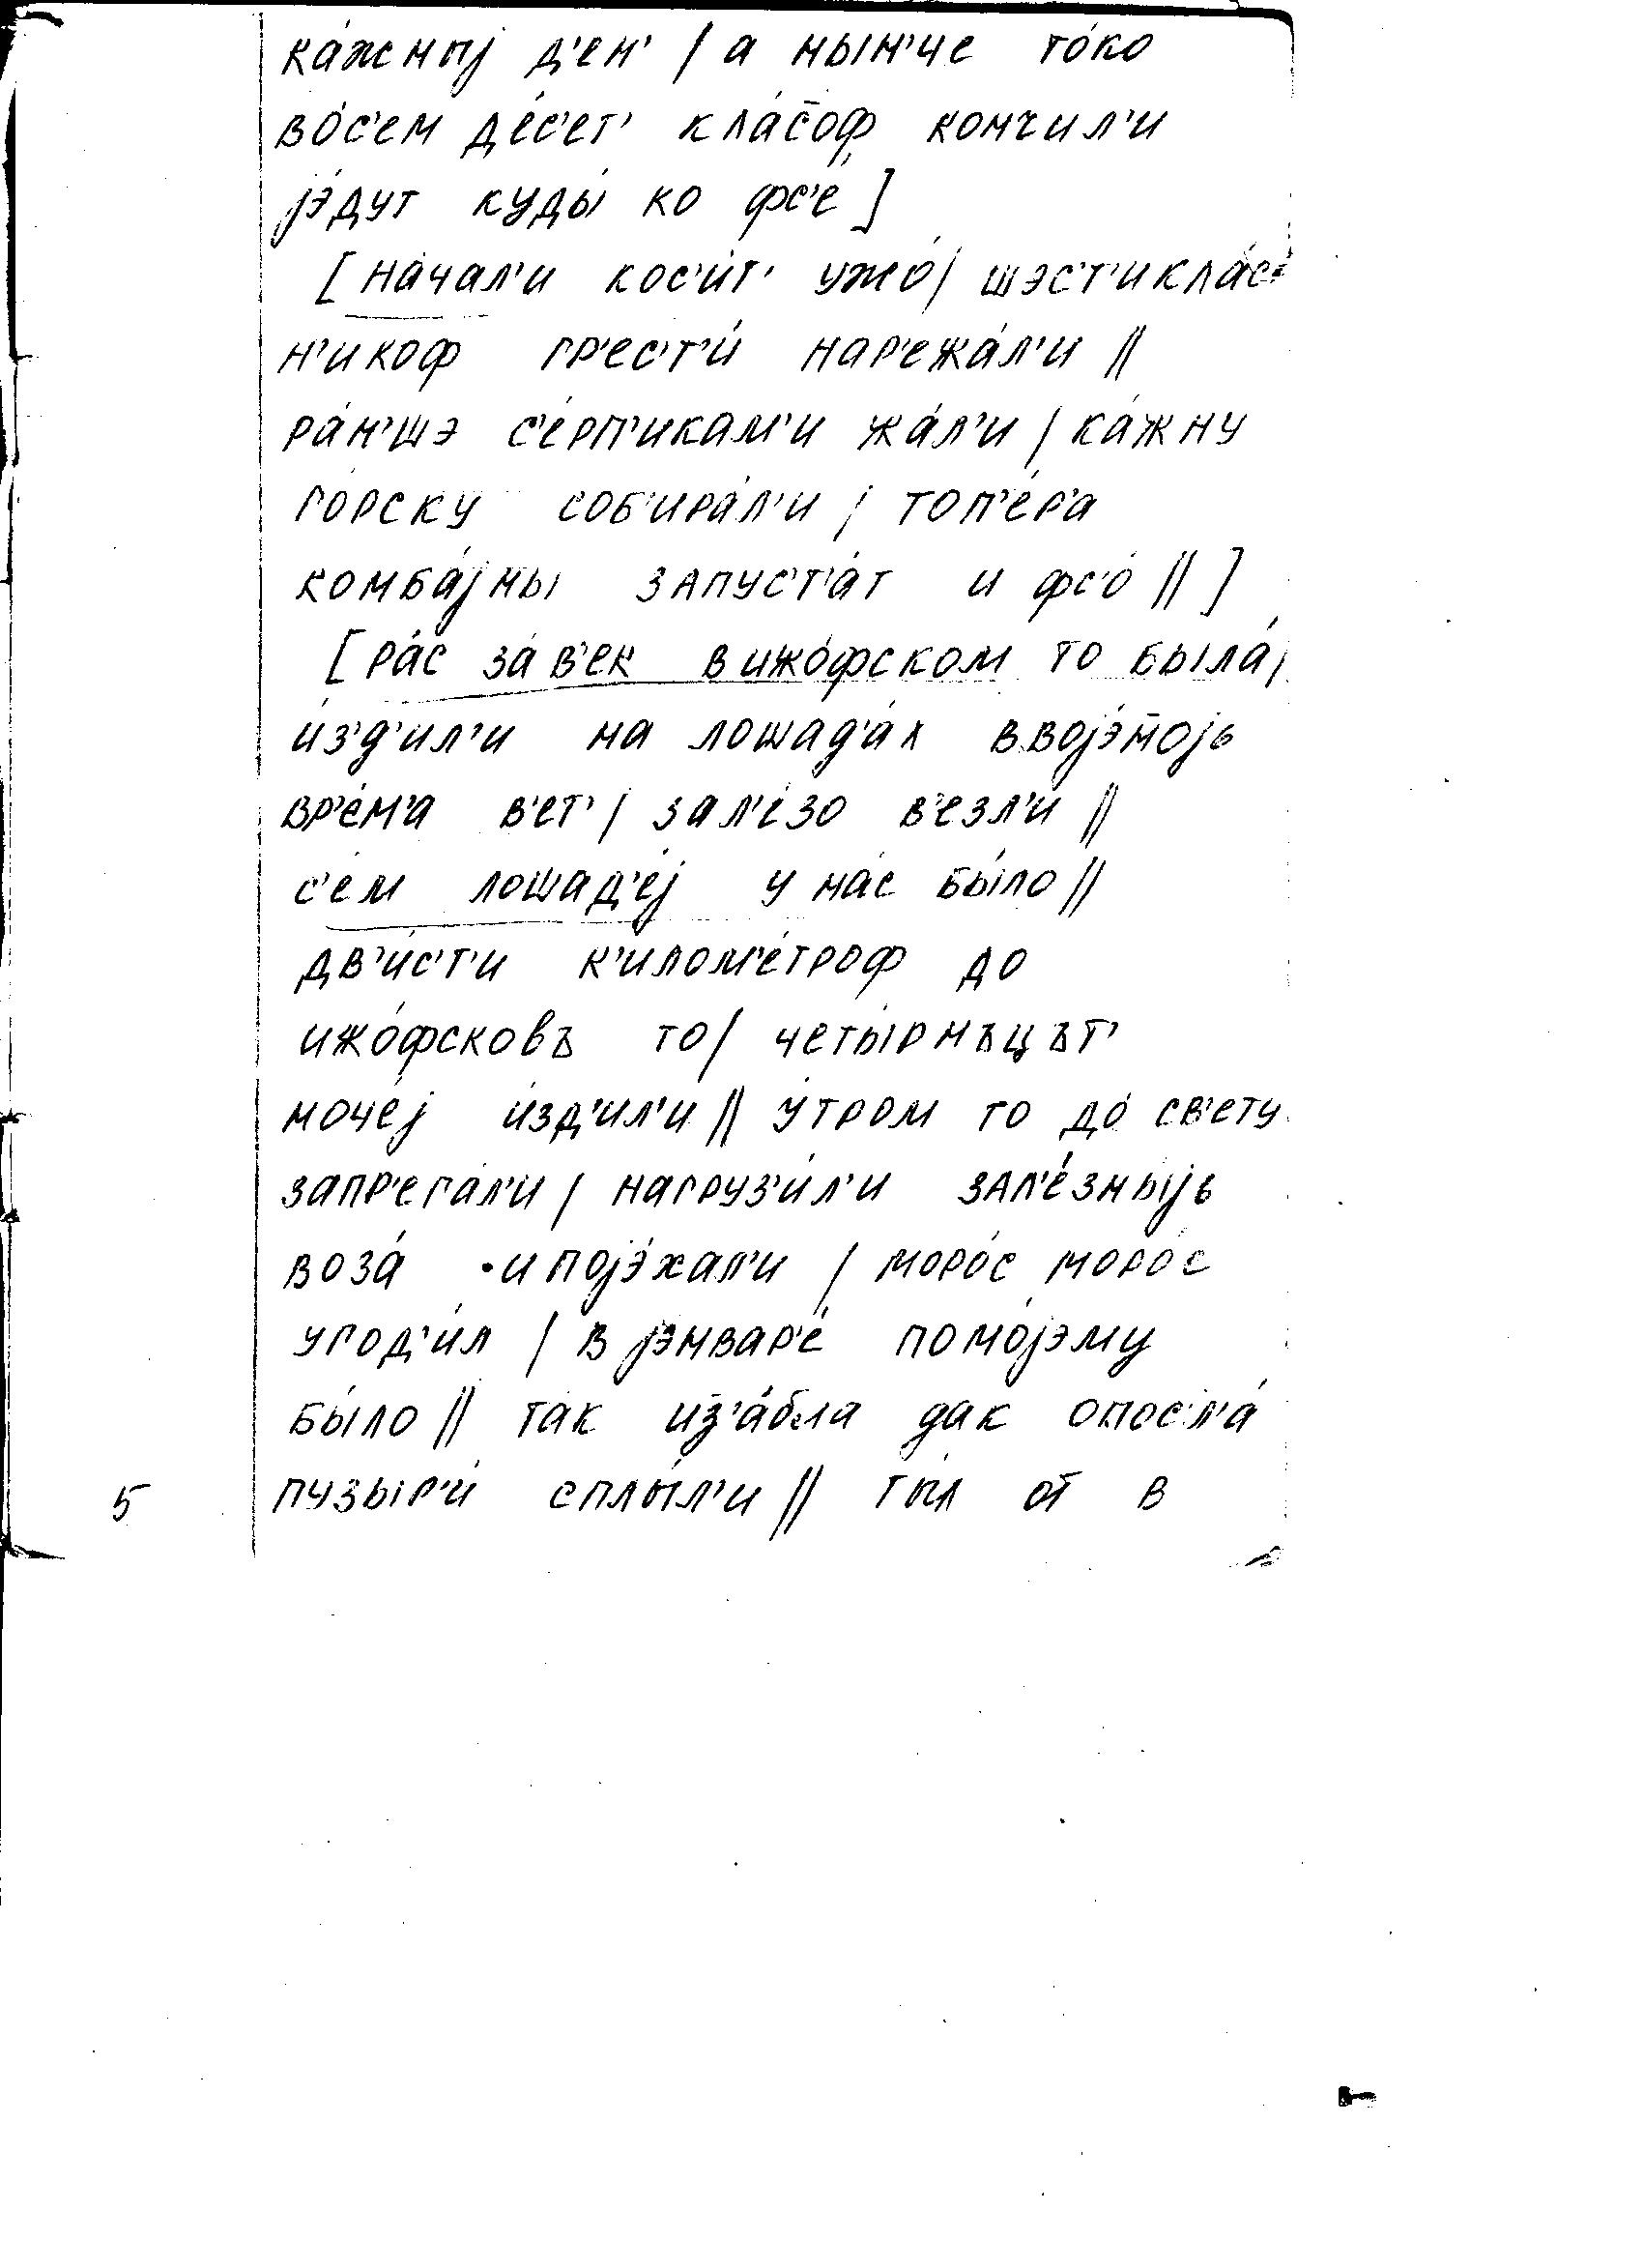 ка́жныj д'ен' / а нын'че то́ко
во́с'ем де́с'ет' кла́с̄оф кончил'и
jэ́дут куды́ ко фс'е́ ]
[ на́чал'и кос'и́т' ужо́ / шэс'т'икла́с'
н'икоф гр'ес'т'и́ нар'ежа́л'и //
ра́н'шэ с'е́рп'икам'и жа́л'и / ка́жну
го́рску соб'ира́л'и / топ'е́р'а
комба́jны запус'т'а́т и фс'о́ // ]
[ ра́с за́ в'ек в ижо́фском то была́ /
и́з'д'ил'и на лошад'а́х в војэ́н̄оjь
вр'е́м'а в'ет' / зал'е́зо в'езл'и́ //
с'е́м лошад'е́j у на́с бы́ло //
дв'и́с'т'и к'илом'е́троф до
ижо́фсковъ то / четы́рнъцът'
ноче́j и́зд'ил'и // у́тром то до́ св'ету
запр'ега́л'и / нагруз'и́л'и зал'е́зныjь
воза́ и поjэ́хал'и / моро́с моро́с
угод'и́л / в jэнвар'е́ помо́jэму
бы́ло // та́к из'а́бла дак опосл'а́
5 пузыр'и́ сплы́л'и // ты́л от в